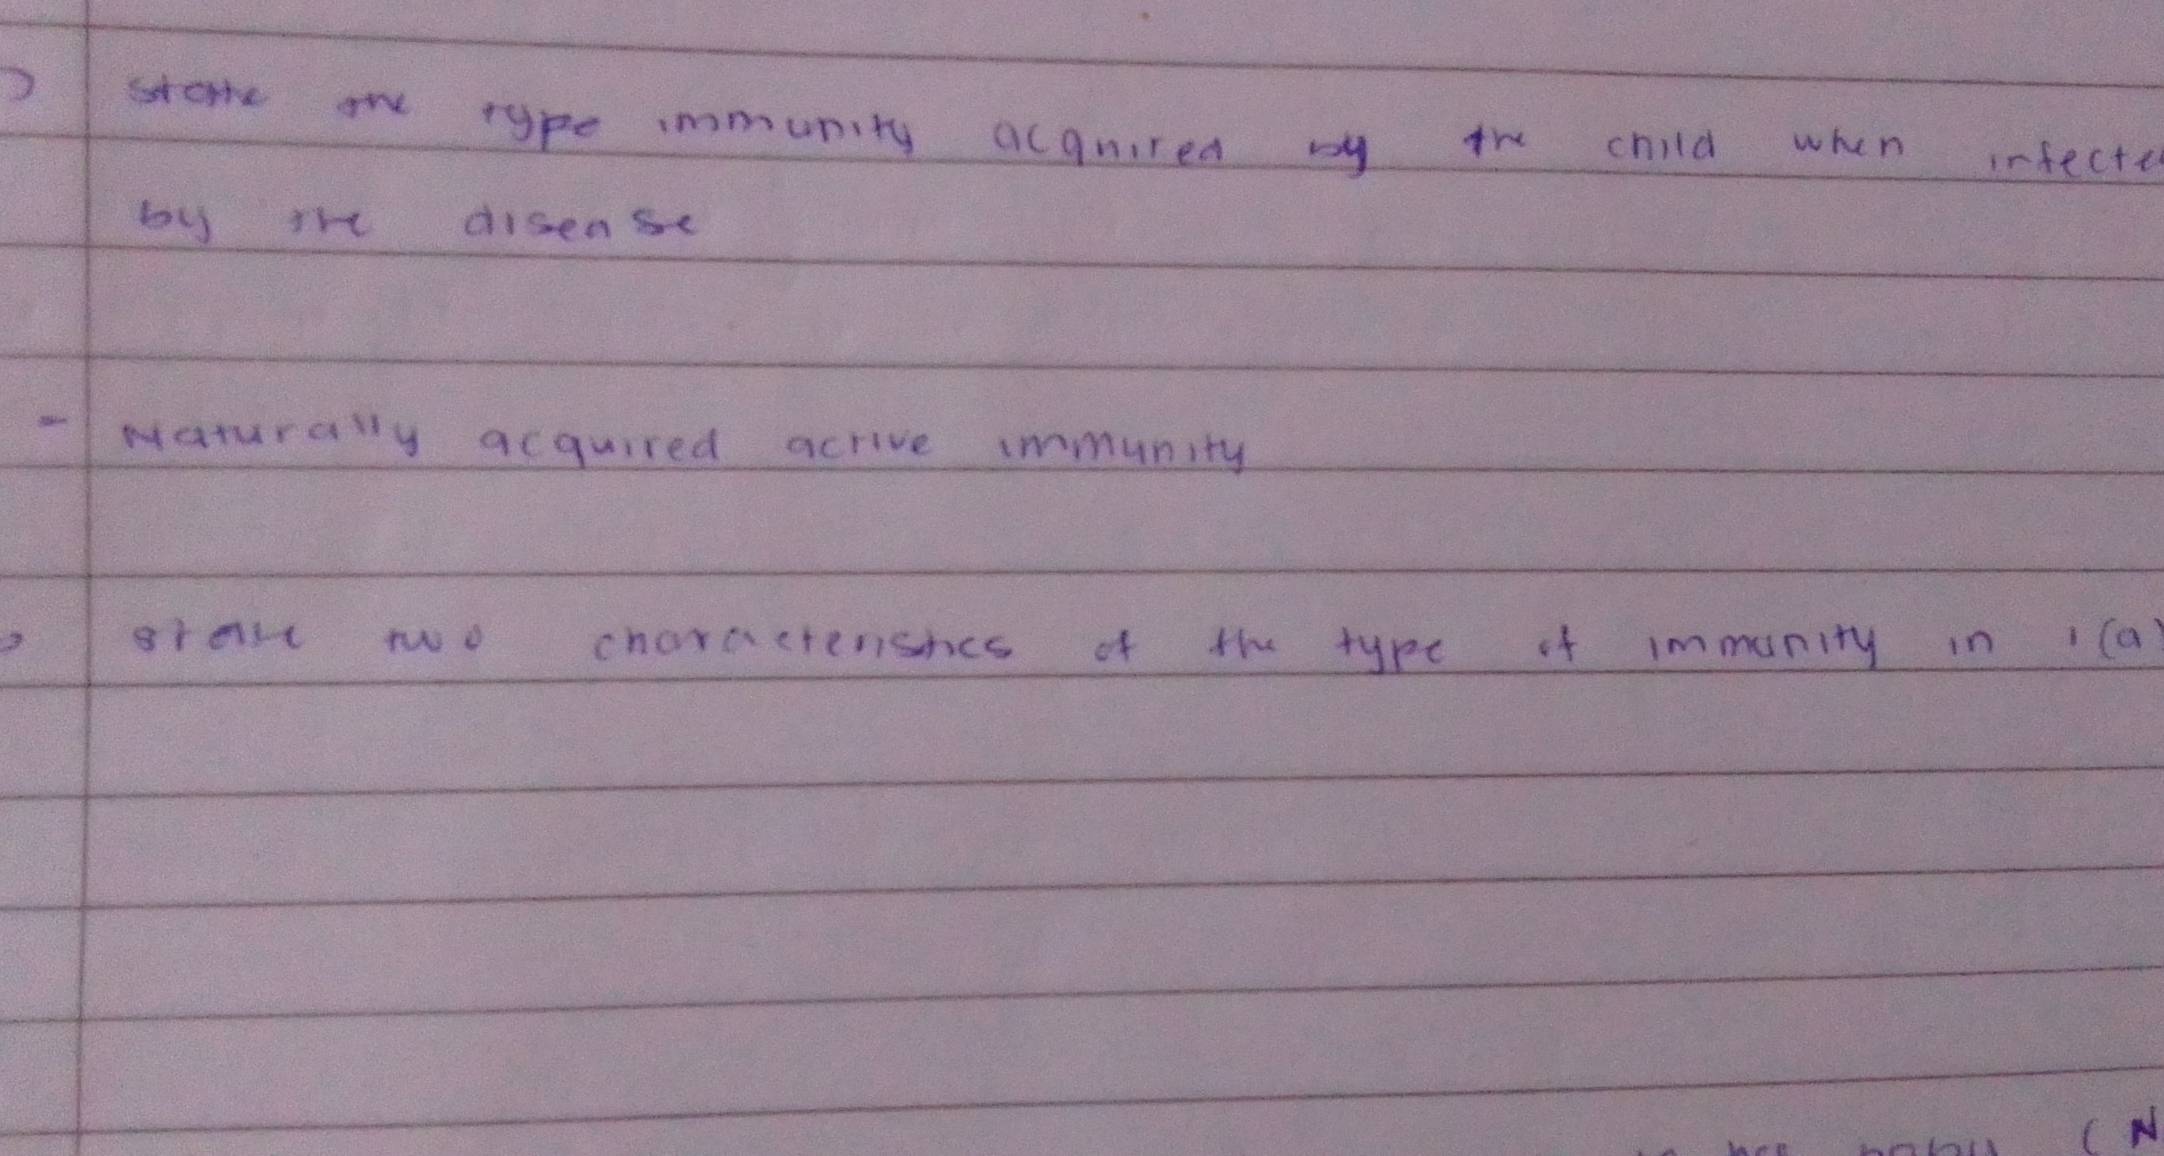 ) state one type immunity acquired by the child when infecte
by the disease
- Naturally acquired active immunity
state two characteristics of the type of immunity in 1(a)
(N